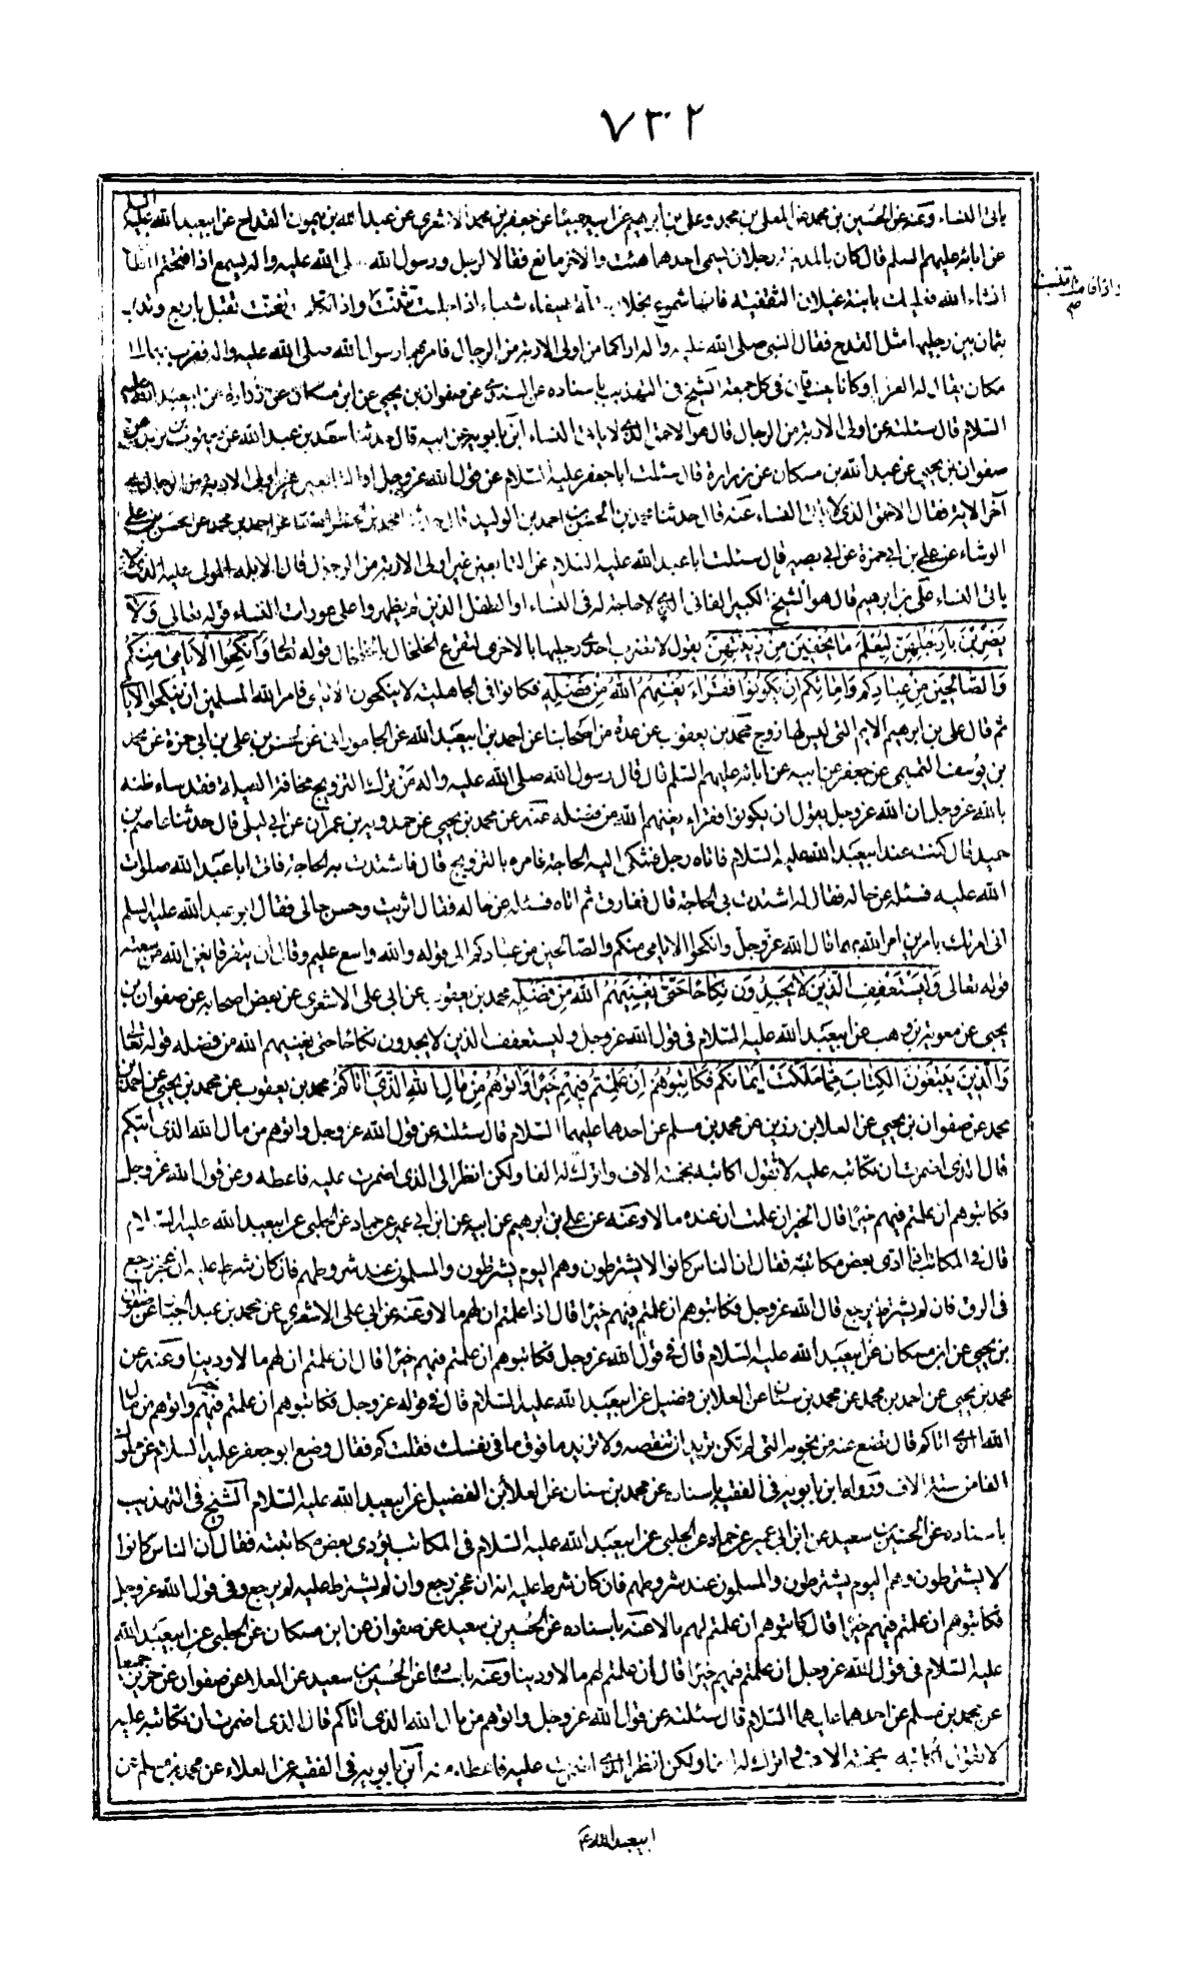 ٧٣٢
ياتى النساء وعنه عن الحسين بن محمد عن المعلى بن محمد وعلى بن ابرهيم عن ابيه جميعا عن جعفر بن محمد الاشعرى عن عبد الله بن ميمون القداح عن ابيعبد الله عليه
عن ابائه عليهم السلم قال كان بالمدينة رجلان يسمى احدهما هيت والاخر مانع فقالا لرجل ورسول الله صلى الله عليه واله يسمع اذا فتحتم الطائف
انشاء الله فعليك بابنة غيلان الثقفية فانها شموع نجلاء هيفاء شنباء اذا جلست تثنت واذا تكلمت غنت تقبل باربع وتدبر
واذا قامت تمنت صح
بثمان بين رجليها مثل القدح فقال النبى صلى الله عليه واله اراكما من اولى الاربة من الرجال فامر بهما رسول الله صلى الله عليه واله فغرب بهما الى
مكان يقال له العرايا وكانا يتسوقان فى كل جمعة الشيخ فى التهذيب باسناده عن السندى عن صفوان بن يحيى عن ابن مسكان عن زرارة عن ابيعبد الله عليه
السلام قال سئلته عن اولى الاربة من الرجال قال هو الاحمق الذى لا ياتى النساء ابن بابويه عن ابيه قال حدثنا سعد بن عبد الله عن يعقوب بن يزيد عن
صفوان بن يحيى عن عبد الله بن مسكان عن زرارة قال سئلت ابا جعفر عليه السلام عن قول الله عز وجل او التابعين غير اولى الاربة من الرجال الى
آخر الاية فقال الاحمق الذى لا ياتى النساء عنه قال حدثنا محمد بن الحسن بن احمد بن الوليد قال حدثنا محمد بن الحسن الصفار عن احمد بن محمد عن الحسن بن على
الوشاء عن على بن ابى حمزة عن ابى بصير قال سئلت ابا عبد الله عليه السلام عن التابعين غير اولى الاربة من الرجال قال الابله المولى عليه الذى لا
ياتى النساء على بن ابرهيم قال هو الشيخ الكبير الفانى الذى لا حاجة له فى النساء او الطفل الذين لم يظهروا على عورات النساء قوله تعالى ولا
يضربن بارجلهن ليعلم ما يخفين من زينتهن يقول لا تضرب احدى رجليها بالاخرى لتقرع الخلخال بالخلخال قوله تعالى وانكحوا الايامى منكم
والصالحين من عبادكم وامائكم ان يكونوا فقراء يغنيهم الله من فضله كانوا فى الجاهلية لا ينكحون الايامى فامر الله المسلمين ان ينكحوا الايامى
ثم قال على بن ابرهيم الايم التى ليس لها زوج محمد بن يعقوب عن عدة من اصحابنا عن احمد بن ابيعبد الله عن الجامورانى عن الحسن بن على بن ابى حمزة عن محمد
بن يوسف التميمى عن جعفر عن ابيه عن ابائه عليهم السلم قال قال رسول الله صلى الله عليه واله من ترك التزويج مخافة العيلة فقد ساء ظنه
بالله عز وجل ان الله عز وجل يقول ان يكونوا فقراء يغنيهم الله من فضله عنه عن محمد بن يحيى عن حمدويه بن عمران عن ابى ليلى قال حدثنا عاصم بن
حميد قال كنت عند ابيعبد الله عليه السلام فاتاه رجل فشكى اليه الحاجة فامره بالتزويج قال فاشتدت به الحاجة فاتى ابا عبد الله صلوات
الله عليه فسئله عن حاله فقال له اشتدت بى الحاجة قال ففارق ثم اتاه فسئله عن حاله فقال اثريت وحسن حالى فقال ابو عبد الله عليه السلم
انى امرتك بامرين امر الله بهما قال الله عز وجل وانكحوا الايامى منكم والصالحين من عبادكم الى قوله والله واسع عليم وقال ان يتفرقا يغن الله من سعته
قوله تعالى وليستعفف الذين لا يجدون نكاحا حتى يغنيهم الله من فضله محمد بن يعقوب عن ابى على الاشعرى عن بعض اصحابه عن صفوان بن
يحيى عن معوية بن وهب عن ابيعبد الله عليه السلام فى قول الله عز وجل وليستعفف الذين لا يجدون نكاحا حتى يغنيهم الله من فضله قوله تعالى
والذين يبتغون الكتاب مما ملكت ايمانكم فكاتبوهم ان علمتم فيهم خيرا واتوهم من مال الله الذى اتاكم محمد بن يعقوب عن محمد بن يحيى عن احمد بن
محمد عن صفوان بن يحيى عن العلا بن رزين عن محمد بن مسلم عن احدهما عليهما السلام قال سئلته عن قول الله عز وجل واتوهم من مال الله الذى اتيكم
قال الذى اضمرت ان تكاتبه عليه لا تقول اكاتبه بخمسة الاف واترك له الفا ولكن انظر الى الذى اضمرت عليه فاعطه وعن قول الله عز وجل
فكاتبوهم ان علمتم فيهم خيرا قال الخير ان علمت ان عنده مالا وعنه عن على بن ابرهيم عن ابيه عن ابن ابى عمير عن حماد عن الحلبى عن ابيعبد الله عليه السلام
قال فى المكاتب اذا ادى بعض مكاتبته فقال ان الناس كانوا لا يشترطون وهم اليوم يشترطون والمسلمون عند شروطهم فان كان شرط عليه ان عجز رجع
فى الرق فان لم يشترط لم يرجع قال الله عز وجل فكاتبوهم ان علمتم فيهم خيرا قال اذا علمتم ان لهم مالا وعنه عن ابى على الاشعرى عن محمد بن عبد الجبار عن صفوان
بن يحيى عن ابن مسكان عن ابيعبد الله عليه السلام قال فى قول الله عز وجل فكاتبوهم ان علمتم فيهم خيرا قال ان علمتم ان لهم مالا ودينا وعنه عن
محمد بن يحيى عن احمد بن محمد عن محمد بن سنان عن العلا بن فضيل عن ابيعبد الله عليه السلام قال فى قوله عز وجل فكاتبوهم ان علمتم فيهم خيرا واتوهم من مال
الله الذى اتاكم قال تضع عنه من نجومه التى لم تكن تريد ان تنقصه ولا تزيد ما فوق ما فى نفسك فقلت كم فقال وضع ابو جعفر عليه السلام عن مملوك
الفا من ستة الاف ورواه ابن بابويه فى الفقيه باسناده عن محمد بن سنان عن العلا بن الفضيل عن ابيعبد الله عليه السلام الشيخ فى التهذيب
باسناده عن الحسين بن سعيد عن ابن ابى عمير عن حماد عن الحلبى عن ابيعبد الله عليه السلام فى المكاتب يؤدى بعض مكاتبته فقال ان الناس كانوا
لا يشترطون وهم اليوم يشترطون والمسلمون عند شروطهم فان كان شرط عليه انه ان عجز رجع وان لم يشترط عليه لم يرجع وفى قول الله عز وجل
فكاتبوهم ان علمتم فيهم خيرا قال كاتبوهم ان علمتم لهم مالا عنه باسناده عن الحسين بن سعيد عن صفوان عن ابن مسكان عن الحلبى عن ابيعبد الله
عليه السلام فى قول الله عز وجل ان علمتم فيهم خيرا قال ان علمتم لهم مالا ودينا وعنه باسناده عن الحسين بن سعيد عن العلا عن صفوان عن حريز جميعا
عن محمد بن مسلم عن احدهما عليهما السلام قال سئلته عن قول الله عز وجل واتوهم من مال الله الذى اتاكم قال الذى اضمرت ان تكاتبه عليه
لا تقول اكاتبه بخمسة الاف واترك له الفا ولكن انظر الى الذى اضمرت عليه فاعطه منه ابن بابويه فى الفقيه عن العلاء عن محمد بن مسلم عن
ابيعبد الله ع